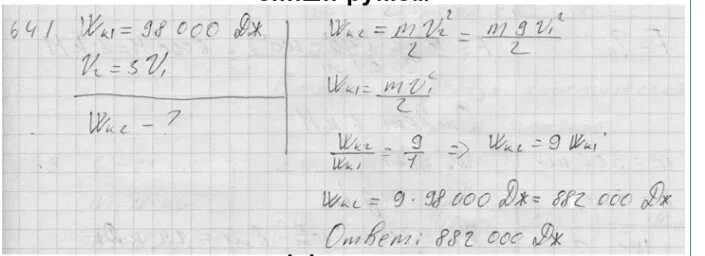 641 Wк1 = 98 000 Дж
V2 = 3 V1
Wк2 - ?
Wк2 = mV2²/2 = m9V1²/2
Wк1 = mV1²/2
Wк2/Wк1 = 9/1 => Wк2 = 9 Wк1
Wк2 = 9 · 98 000 Дж = 882 000 Дж
Ответ: 882 000 Дж